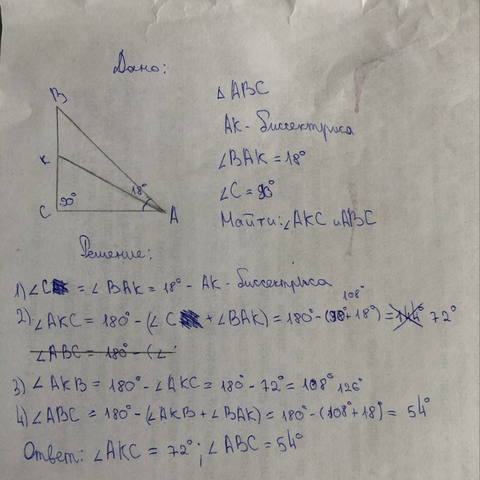 Дано:
B
K
C
90°
18°
A
Δ ABC
AK - биссектриса
∠BAK = 18°
∠C = 90°
Найти: ∠AKC и ABC
Решение:
1) ∠C = ∠BAK = 18° - AK - биссектриса
108°
2) ∠AKC = 180° - (∠C + ∠BAK) = 180° - (90° + 18°) = 144° 72°
∠ABC = 180° - (∠
3) ∠AKB = 180° - ∠AKC = 180° - 72° = 108° 126°
4) ∠ABC = 180° - (∠AKB + ∠BAK) = 180° - (108° + 18°) = 54°
Ответ: ∠AKC = 72°; ∠ABC = 54°